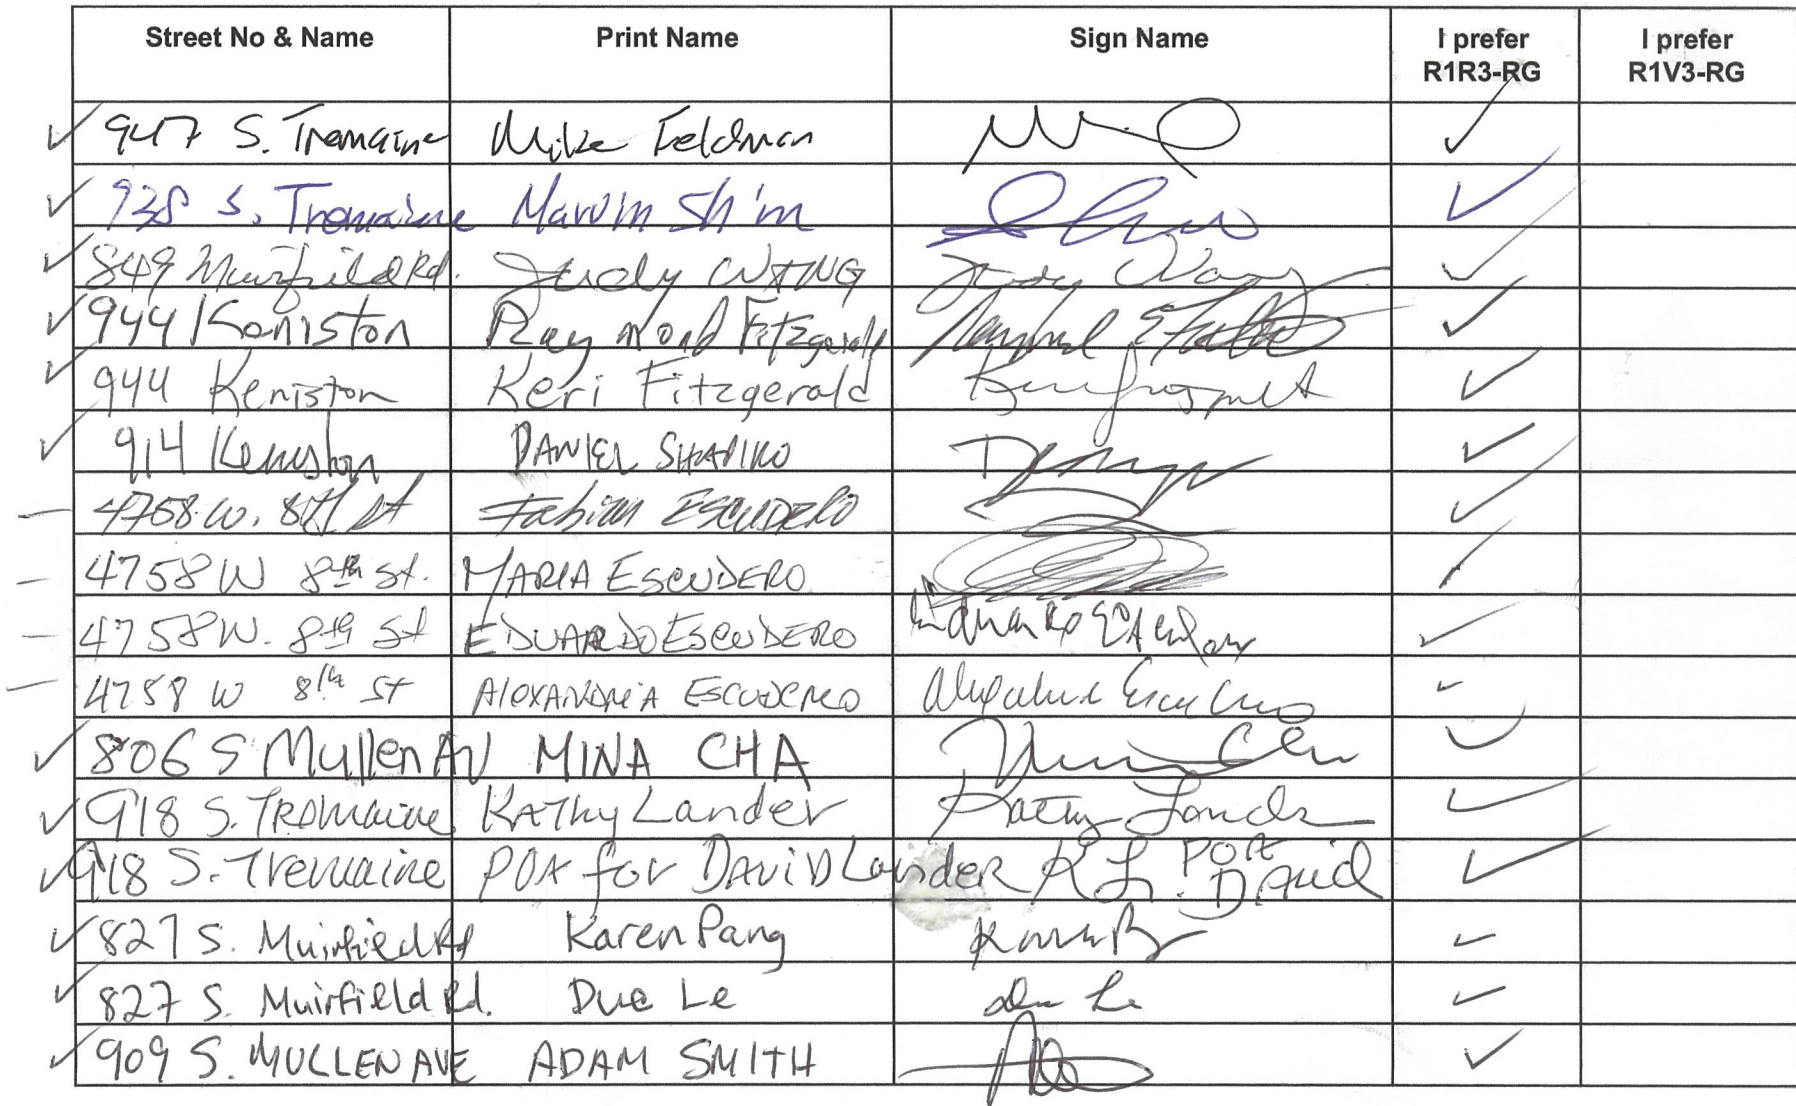 Street No & Name Print Name Sign Name I prefer R1R3-RG I prefer R1V3-RG
947 S. Tremaine Mike Feldman
938 S. Tremaine Marvin Shim
849 Muirfield Rd. Judy WANG Judy Wang
944 Keniston Raymond Fitzgerald
944 Keniston Keri Fitzgerald
914 Keniston DANIEL SHAPIRO
4758 W. 8th St Fabian ESCUDERO
4758 W 8th St. MARIA ESCUDERO
4758 W. 8th St EDUARDO ESCUDERO
4758 W 8th St AlOXANDRiA ESCUDERO
806 S Mullen AV MINA CHA
918 S. TRemaine KAThy Lander Kathy Lander
918 S. Tremaine POA for DAViD Lander K L. POA David
827 S. Muirfield Rd Karen Pang
827 S. Muirfield Rd. Duc Le
909 S. MULLEN AVE ADAM SMITH